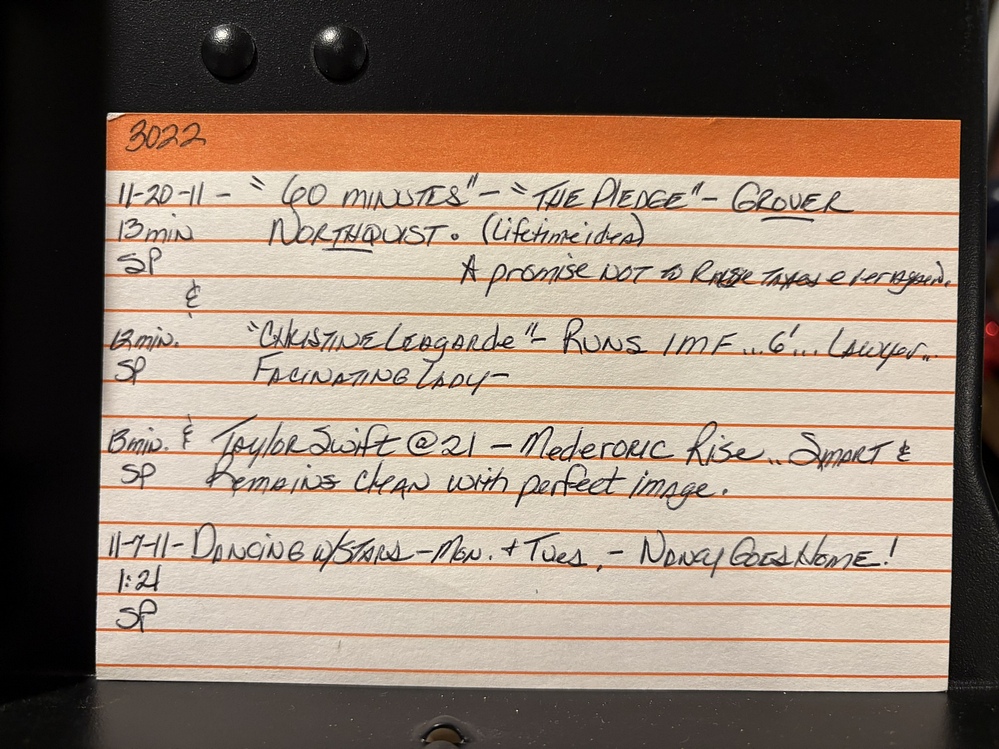 3022
11-20-11 - "60 MINUTES" - "THE PLEDGE" - GROVER
13 min NORTHQUIST. (Lifetime idea)
SP A promise NOT to RAISE TAXES ever again.
&
12 min. "CHRISTINE LEAGARDE" - RUNS IMF...6'... LAWYER..
SP FACINATING LADY -
13 min. & TAYLOR Swift @ 21 - MEDEORIC Rise.. SMART &
SP REMAINS CLEAN with perfect image.
11-7-11 - DANCING W/STARS - MON. + TUES. - NANCY GOES HOME!
1:21
SP